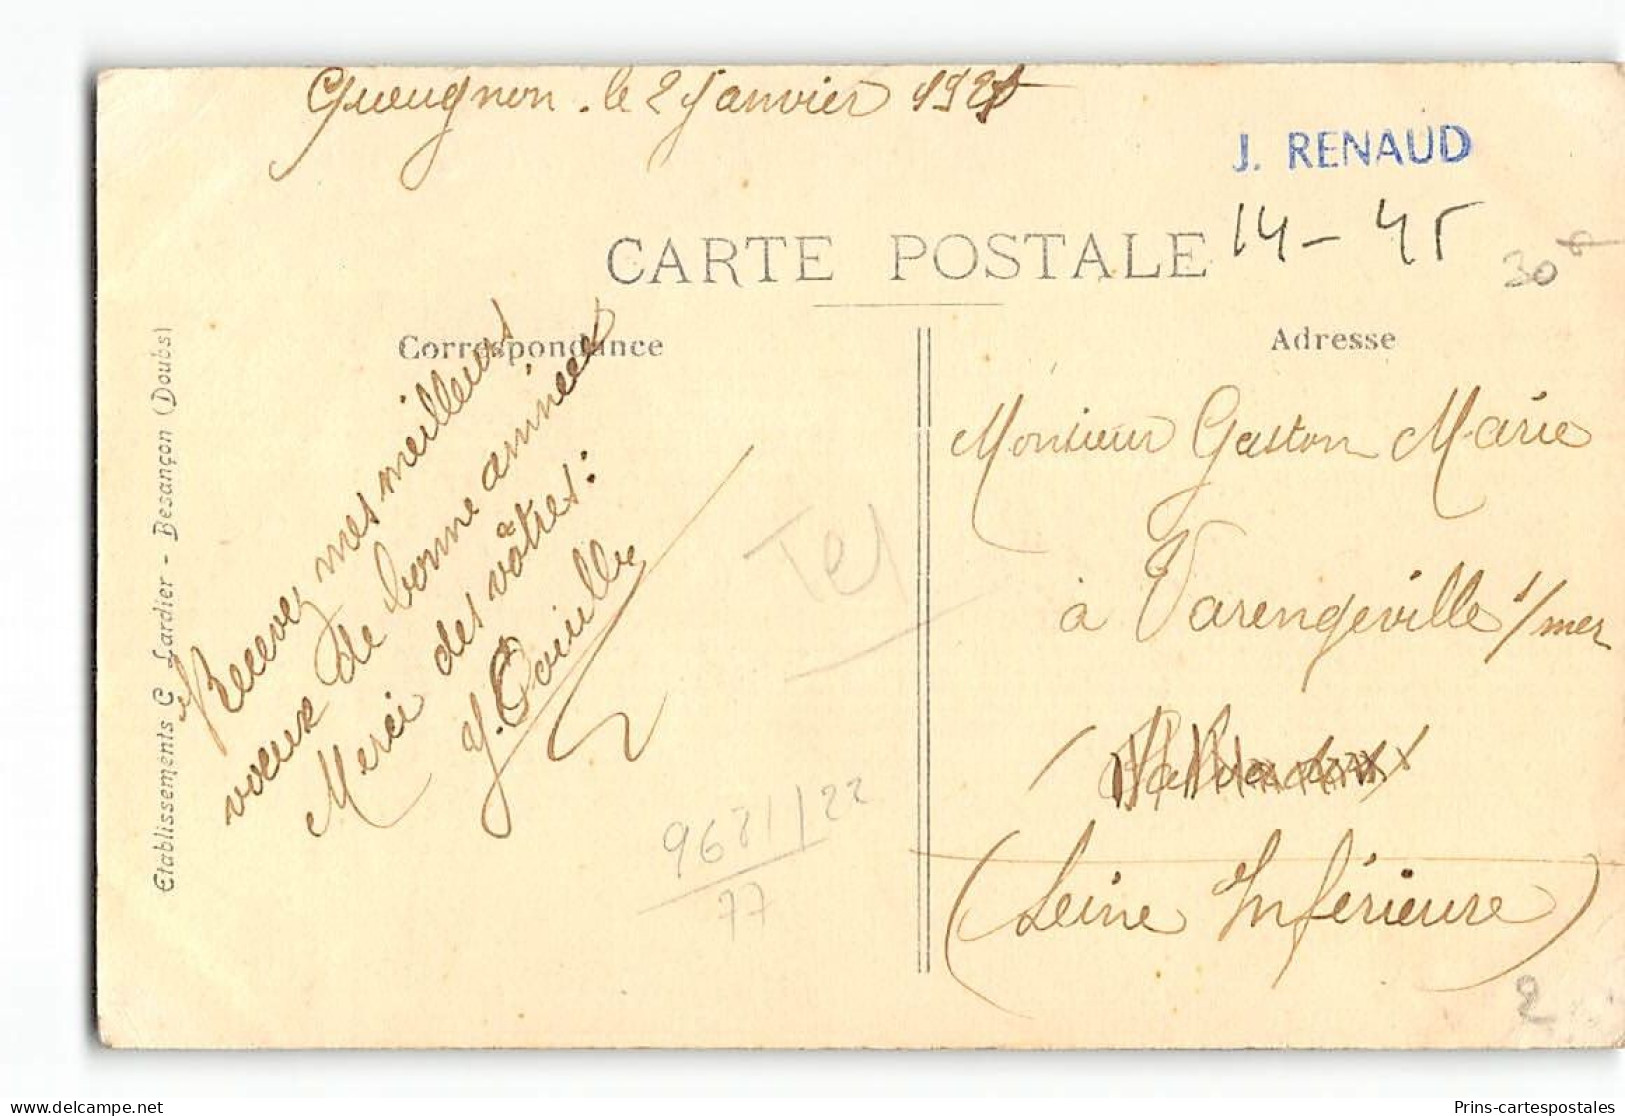 Gueugnon. le 2 Janvier 192
J. RENAUD
14-45
30
CARTE POSTALE
Correspondance
Adresse
Etablissements C Lardier - Besançon (Doubs)
Recevez mes meilleurs
voeux de bonne année
Merci des vôtres:
Monsieur Gaston Marie
à Varengeville s/mer
(Seine Inférieure)
9681/22
77
2
Prins-cartespostales.com
Prins-cartespostales